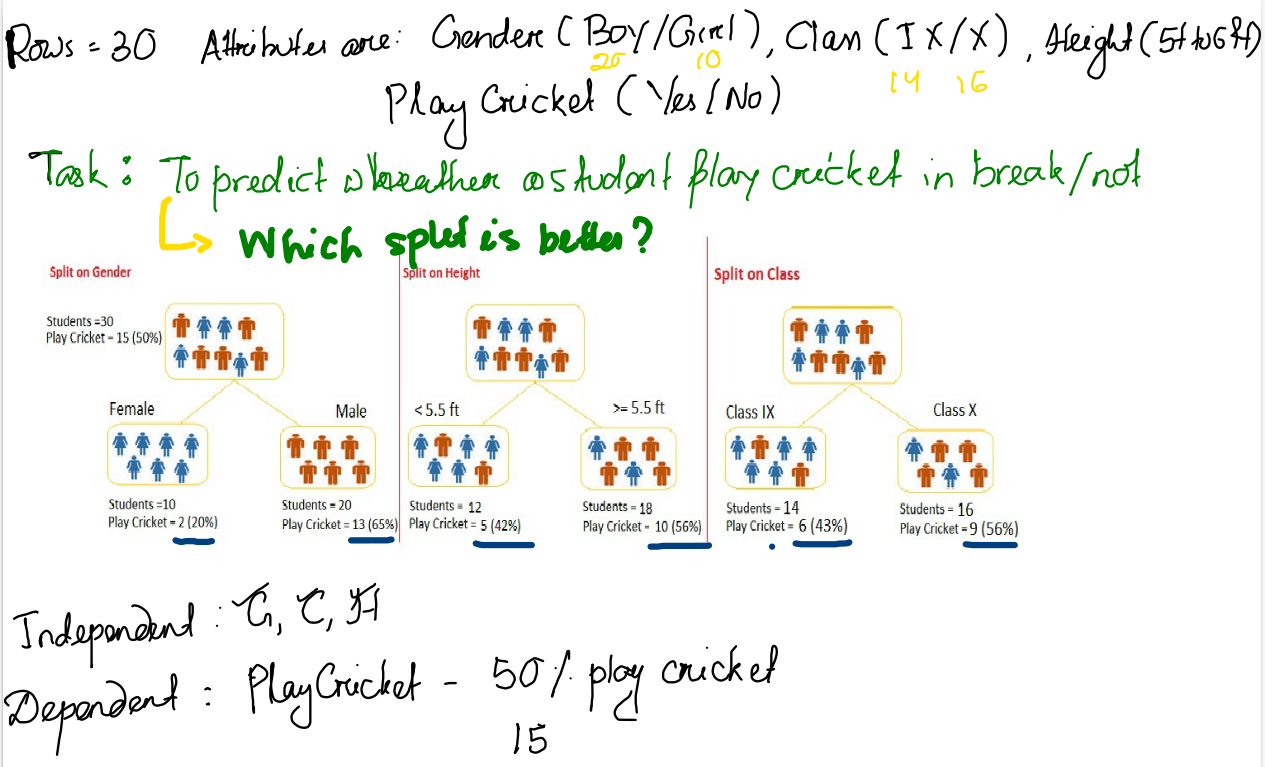 Rows = 30 Attributes are: Gender (Boy/Girl), Class (IX/X), Height (5ft to 6ft)
20 10 14 16
Play Cricket (Yes/No)
Task: To predict wheather a student play cricket in break/not
Which split is better?
Split on Gender
Students =30
Play Cricket = 15 (50%)
Female
Male
Students =10
Play Cricket = 2 (20%)
Students = 20
Play Cricket = 13 (65%)
Split on Height
< 5.5 ft
>= 5.5 ft
Students = 12
Play Cricket = 5 (42%)
Students = 18
Play Cricket = 10 (56%)
Split on Class
Class IX
Class X
Students = 14
Play Cricket = 6 (43%)
Students = 16
Play Cricket = 9 (56%)
Independend : G, C, H
Dependent : Play Cricket - 50% play cricket
15